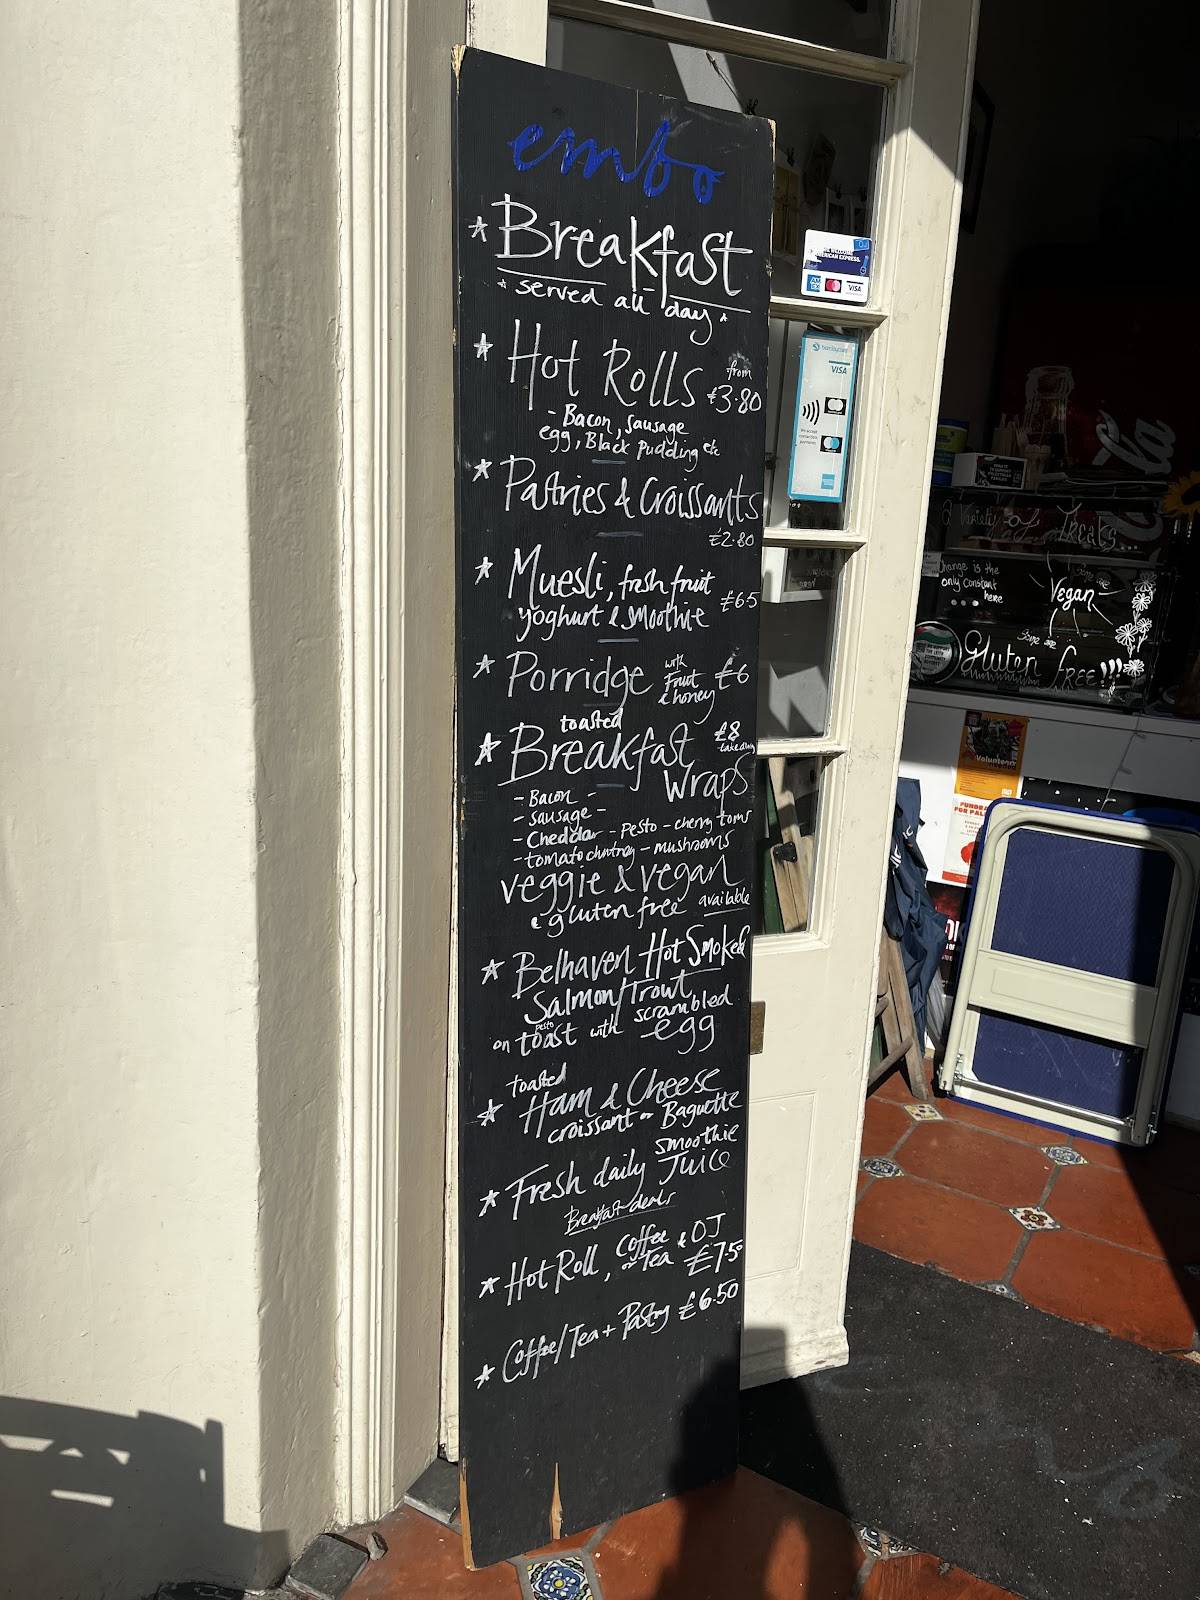 embo
Breakfast
served all day
Hot Rolls from £3.80
- Bacon, sausage
egg, Black Pudding etc
Pastries & Croissants
£2.80
Muesli, fresh fruit
yoghurt & smoothie £6.5
Porridge with Fruit & honey £6
toasted
Breakfast £8
wraps
- Bacon -
- sausage -
- Cheddar - pesto - cherry toms
- tomato chutney - mushrooms
veggie & vegan
& gluten free available
Belhaven Hot Smoked
Salmon/Trout
on pesto toast with scrambled
egg
toasted
Ham & Cheese
croissant or Baguette
Fresh daily smoothie
Juice
Breakfast deals
Hot Roll, Coffee or Tea & OJ
£7.50
Coffee/Tea + Pastry £6.50
AMERICAN EXPRESS
VISA
barclaycard
VISA
a Variety of Treats...
Change is the
only constant
here
some are
Vegan
some are
Gluten free!!!
Volunteer